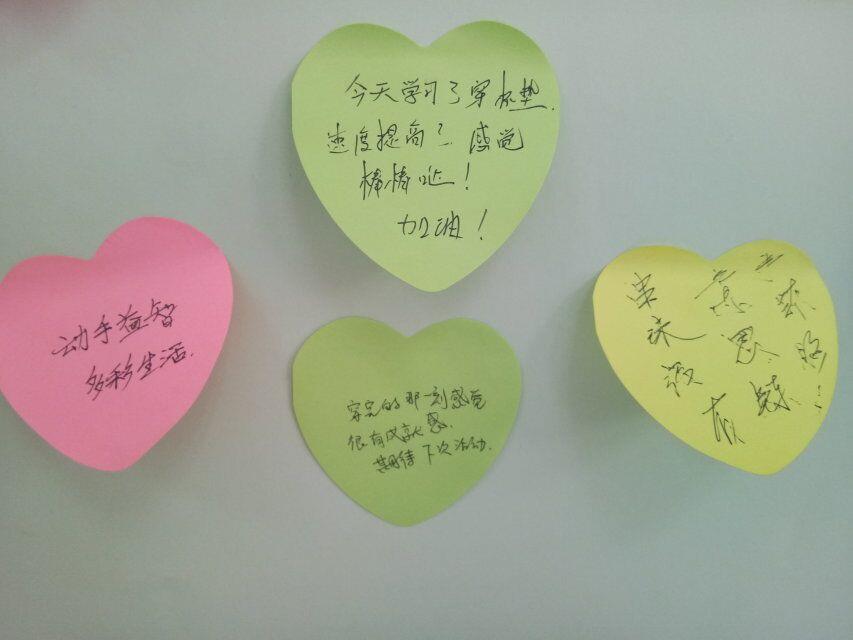 今天学习了穿杯垫.
速度提高了 感觉
棒棒哒!
加油!
动手益智
多彩生活.
穿完的那一刻感觉
很有成就感.
期待下次活动.
意
思